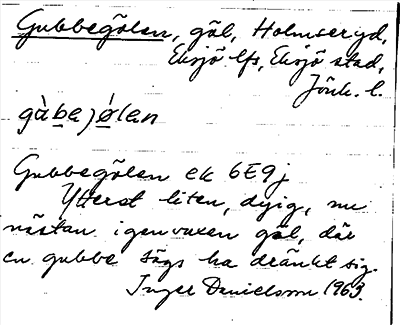 Gubbegölen, göl, Holmseryd,
Eksjö lfs, Eksjö stad,
Jönk. l.
gùbejǿlen
Gubbegölen ek 6E9j
Ytterst liten, dyig, nu
nästan igenvuxen göl, där
en gubbe sägs ha dränkt sig.
Inger Danielsson 1963.